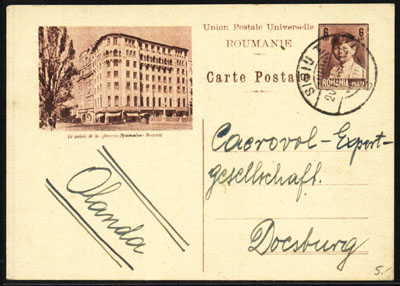 Union Postale Universelle
ROUMANIE
Carte Postale
6 6
ROMANIA POSTA
SIBIU
Le palais de la „Banque Roumaine“ Bucarest
Cacrovol-Export-
gesellschaft.
Docsburg
Olanda
5.-